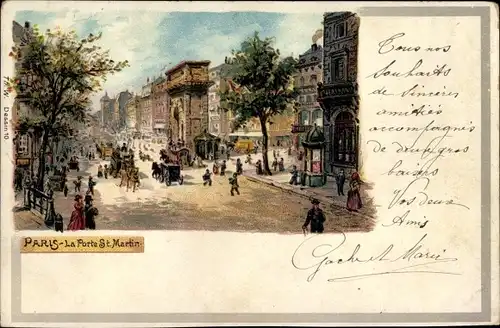 T.S.N. Dessin 10
Tous nos
souhaits
de sincères
amitiés
accompagnés
de deux gros
baisers
Vos deux
Amis
et Marie
PARIS - La Porte St. Martin.